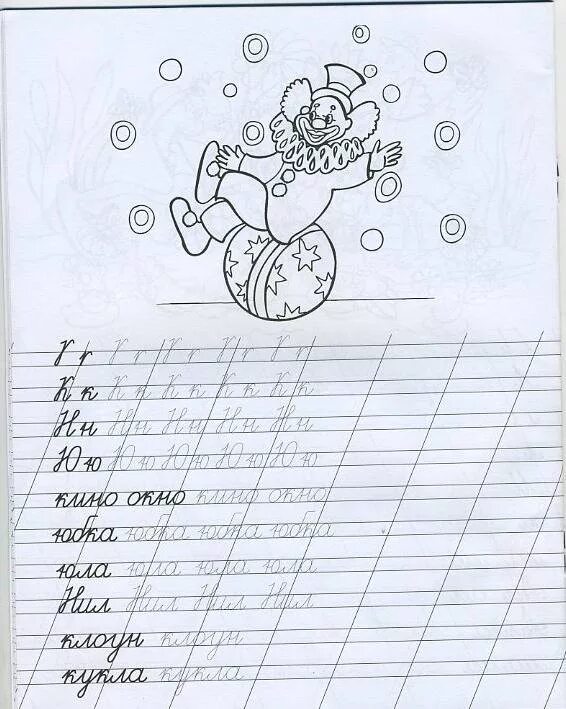 К к К к К к К к К к
Н н Н н Н н Н н Н н
Ю ю Ю ю Ю ю Ю ю Ю ю
кино окно кино окно
юбка юбка юбка юбка
юла юла юла юла
Нил Нил Нил Нил
клоун клоун
кукла кукла